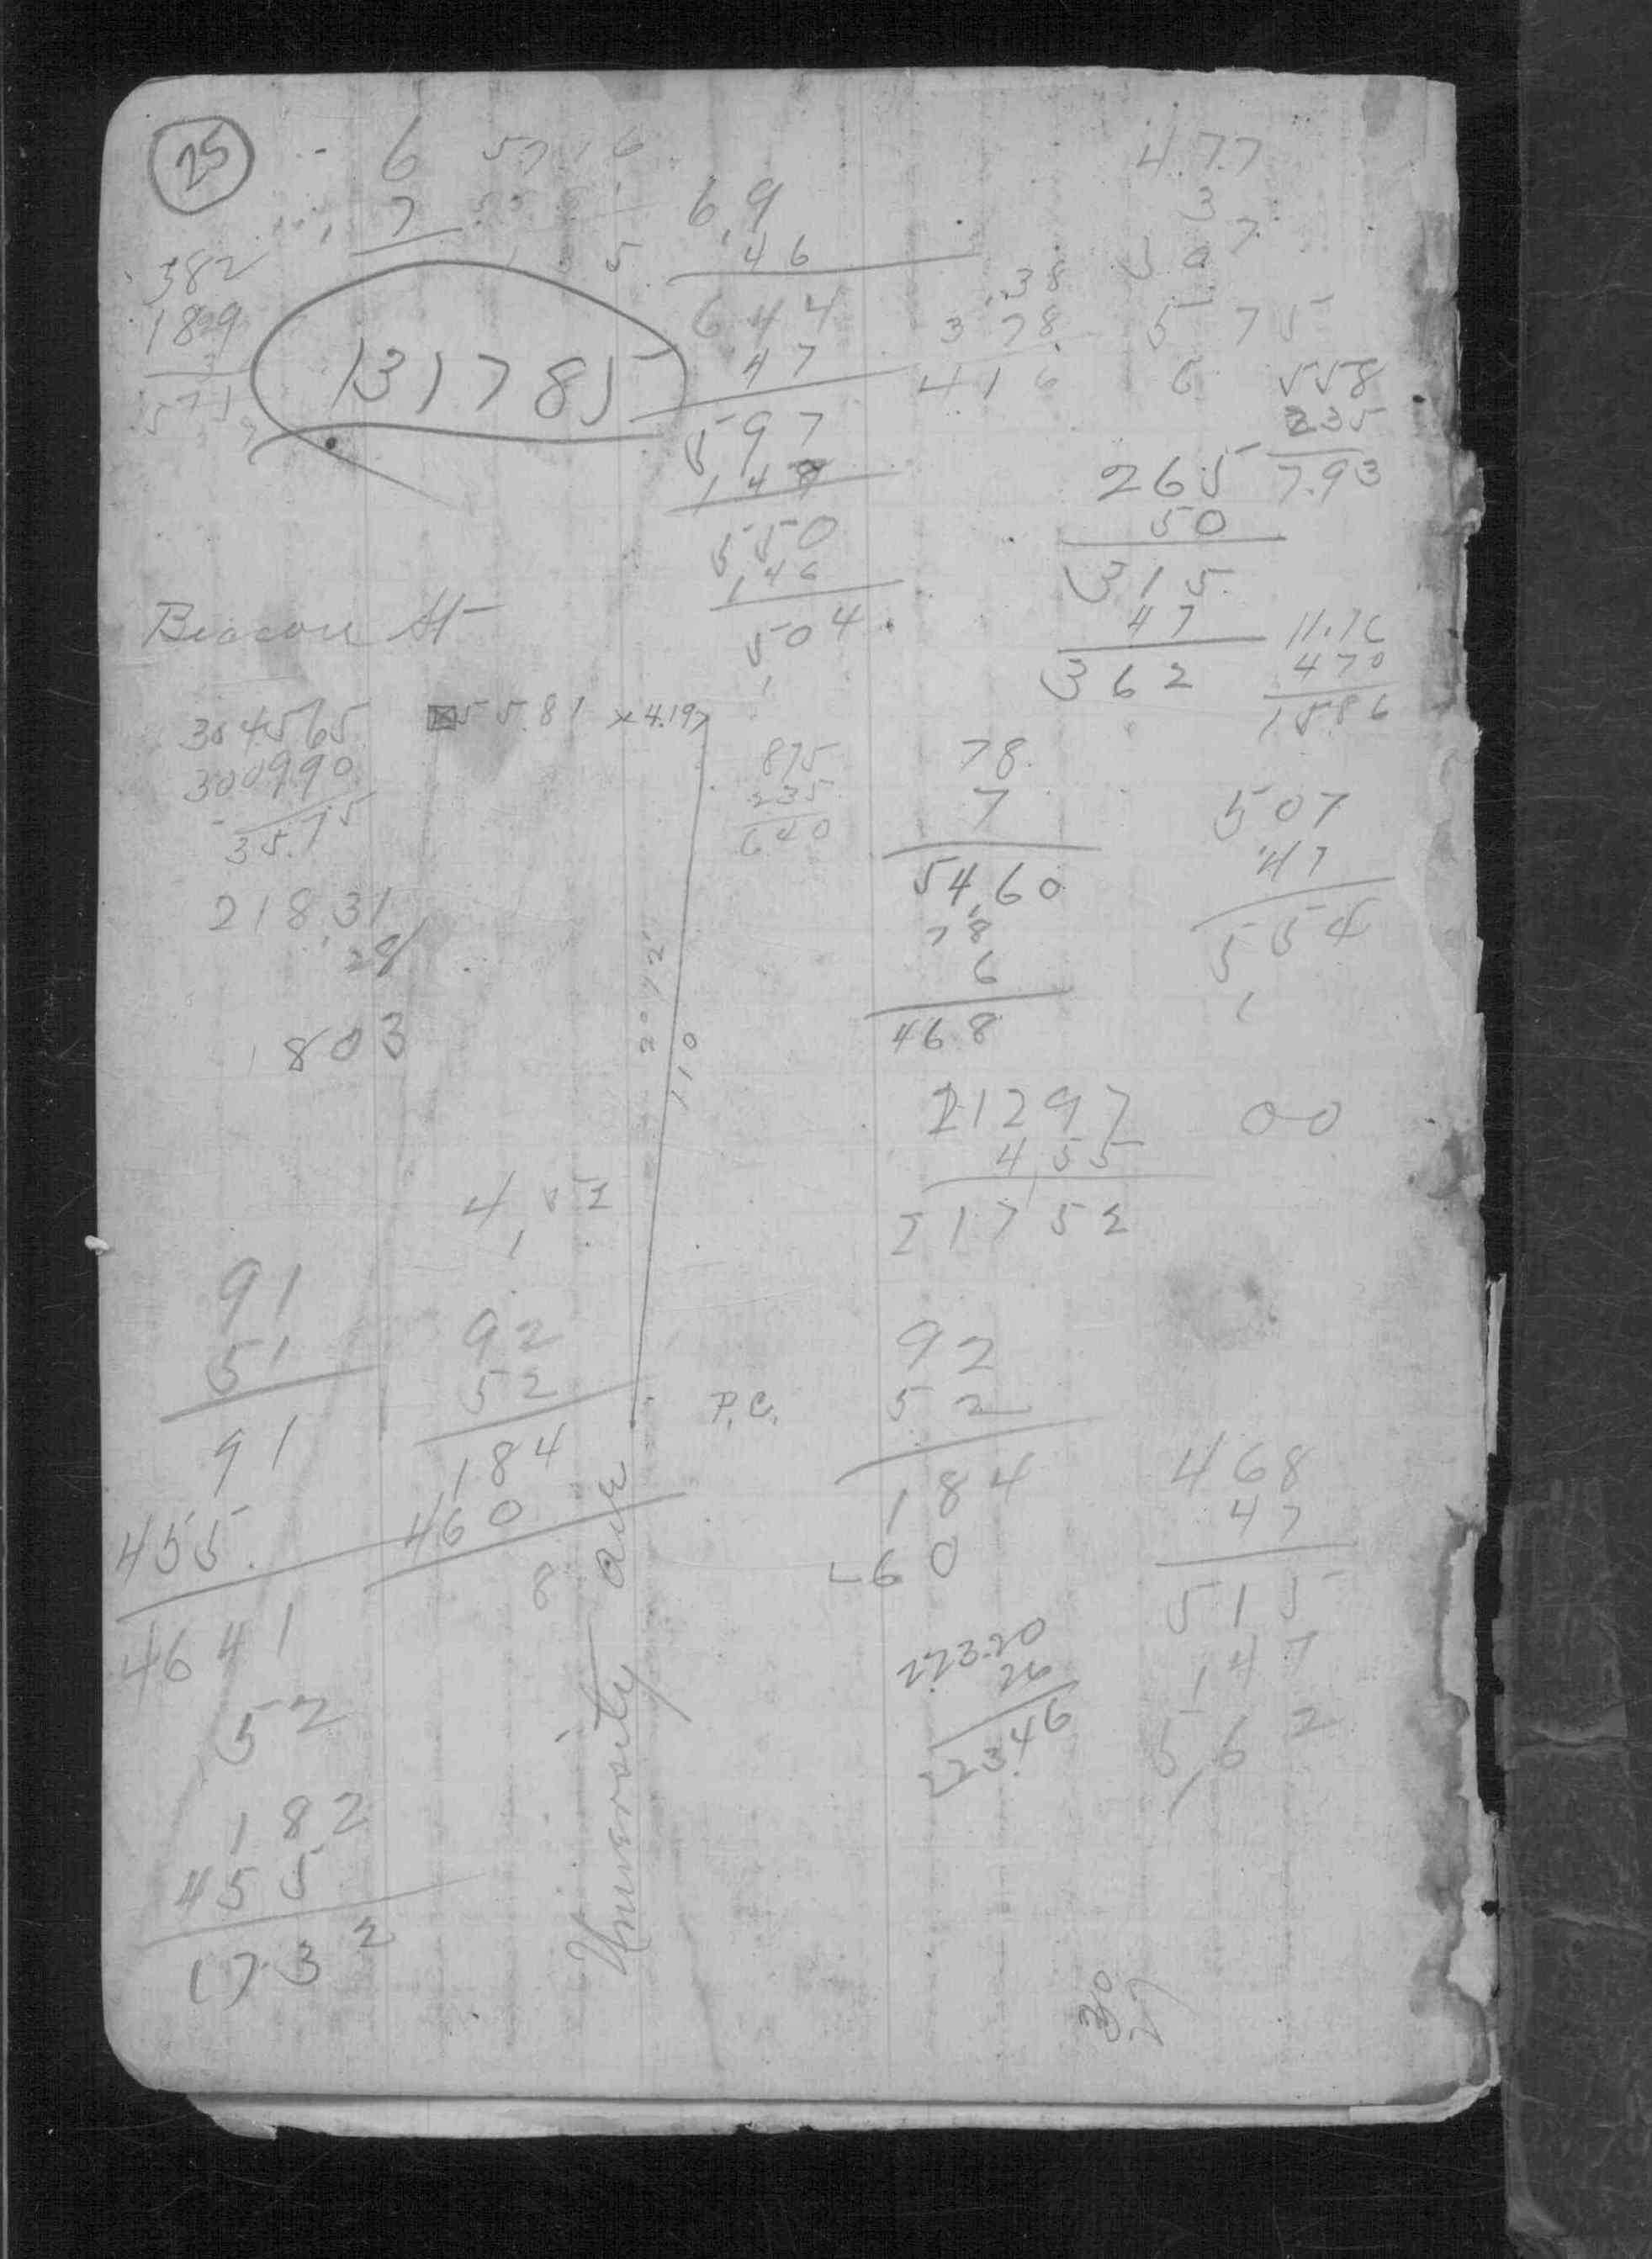 25
6
7
382
189
571
131785
69
46
644
47
597
148
550
146
504
38
378
416
477
3
307
575
6
558
235
7.93
265
50
315
47
362
11.16
470
1586
Beacon St
304565
300990
35.75
55.81 x 4.19
21831
28
1803
875
235
640
78
7
5460
78
6
468
507
47
554
20.92
110
21297
455
21752
00
4 52
91
51
91
455
4641
52
182
455
1732
92
52
184
460
8
University ave
P.C.
92
52
184
60
223.20
26
223.46
468
47
515
147
562
30
27